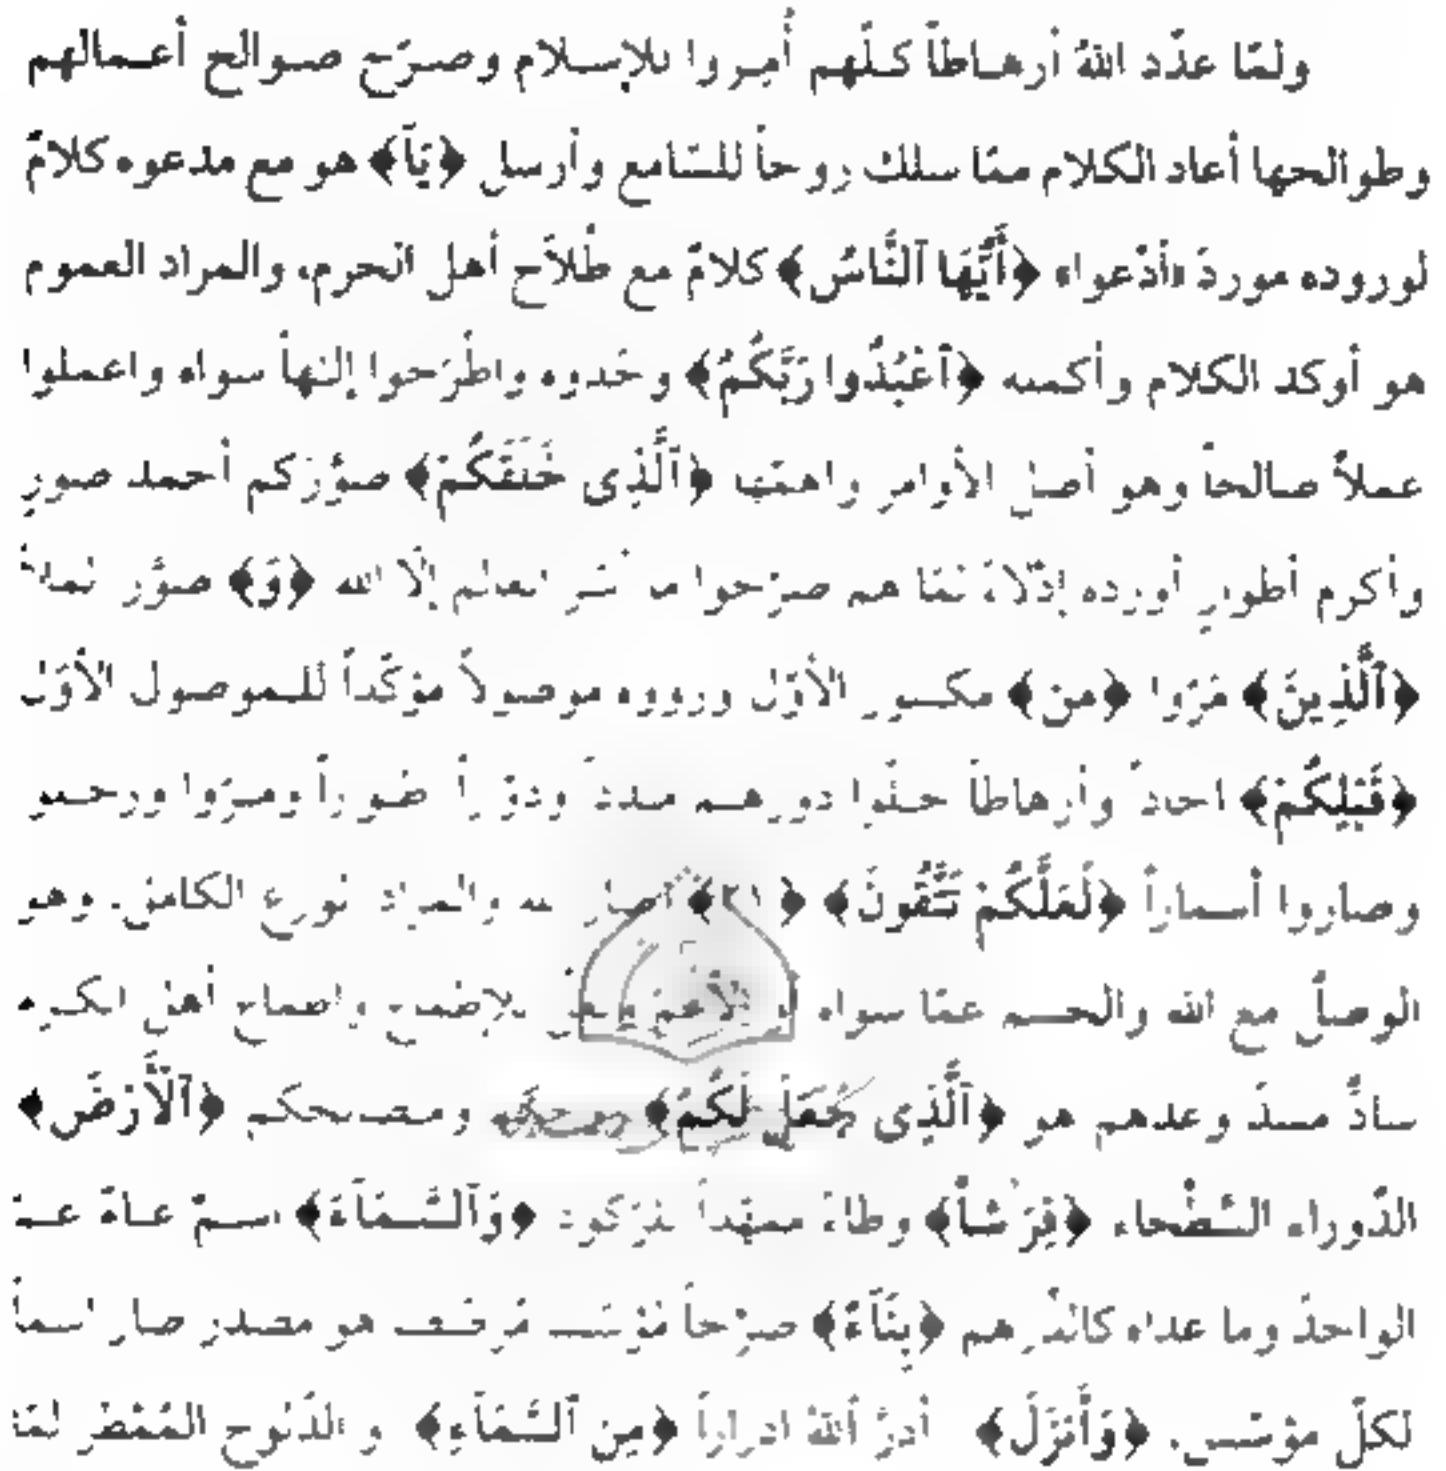 ولمّا عدّد اللهُ أرهاطاً كلّهم أُمِروا بالإسلام وصرّح صوالح أعمالهم
وطوالحها أعاد الكلام ممّا سلك روحاً للسّامع وأرسل ﴿يَآ﴾ هو مع مدعوه كلامٌ
لوروده موردَ «أدْعوا» ﴿أَيُّهَا ٱلنَّاسُ﴾ كلامٌ مع طُلاّح أهل الحرم، والمراد العموم
هو أوكد الكلام وأكمله ﴿ٱعْبُدُوا رَبَّكُمُ﴾ وحّدوه واطْرَحوا إلٰهاً سواه واعملوا
عملاً صالحاً وهو أصل الأوامر واهمّها ﴿ٱلَّذِى خَلَقَكُمْ﴾ صوّركم أحمد صورٍ
وأكرم أطوارٍ أورده إدْلاءً لمّا هم صرّحوا ما أسَرَ العالم إلّا الله ﴿وَ﴾ صوَّر
﴿ٱلَّذِينَ﴾ مَرّوا ﴿مِن﴾ مكسور الأوّل ورووه موصولاً مؤكّداً للموصول الأوّل
﴿قَبْلِكُمْ﴾ احاداً وأرهاطاً حلّوا دورهم مدداً ودوّراً ومرّوا ورحلوا
وصاروا أسماراً ﴿لَعَلَّكُمْ تَتَّقُونَ﴾ ﴿٢١﴾ والمراد الورع الكامل، وهو
الوصلُ مع الله والحسم عمّا سواه أو الأعمّ للإطماع وإطماع أهل الكرم
سادٌّ مسدّ وعدهم هو ﴿ٱلَّذِى جَعَلَ لَكُمُ﴾ ومصالحكم ﴿ٱلْأَرْضَ﴾
الدّوراء السّطْحاء ﴿فِرَٰشاً﴾ وطاءً ممهّداً للرّكود ﴿وَٱلسَّمَآءَ﴾ اسمٌ عامٌّ عمّ
الواحدَ وما عداه كالدّرهم ﴿بِنَآءً﴾ صرْحاً مؤسّساً هو مصدر صار اسماً
لكلّ مؤسّس. ﴿وَأَنزَلَ﴾ أدرَّ اللهُ ادراراً ﴿مِنَ ٱلسَّمَآءِ﴾ و الممْطر لمّا